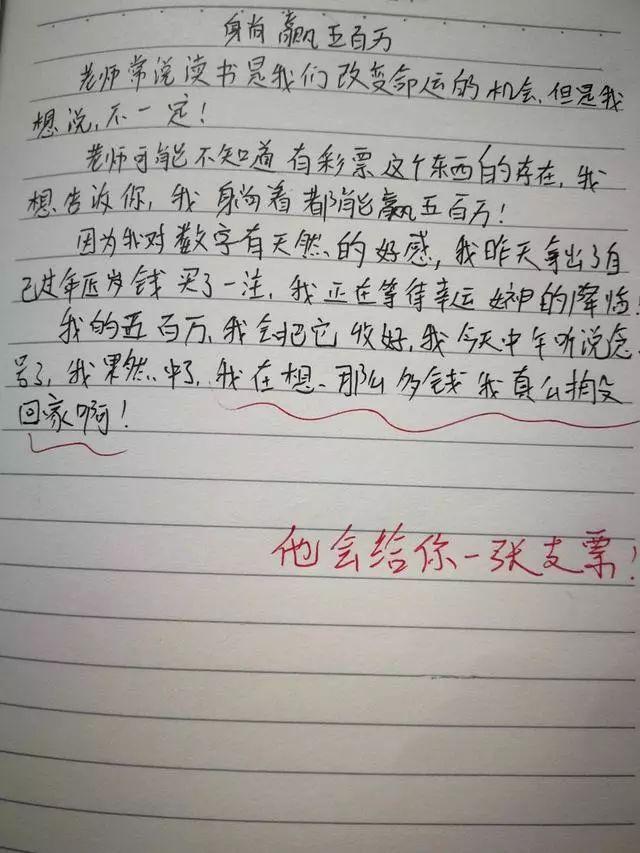 躺赢五百万
老师常说读书是我们改变命运的机会,但是我
想说,不一定!
老师可能不知道有彩票这个东西的存在,我
想告诉你,我躺着都能赢五百万!
因为我对数字有天然的好感,我昨天拿出了自
己过年压岁钱买了一注,我正在等待幸运女神的降临!
我的五百万,我会把它收好,我今天中午听说
号了,我果然中了,我在想,那么多钱我真么拍没
回家啊!
他会给你一张支票!